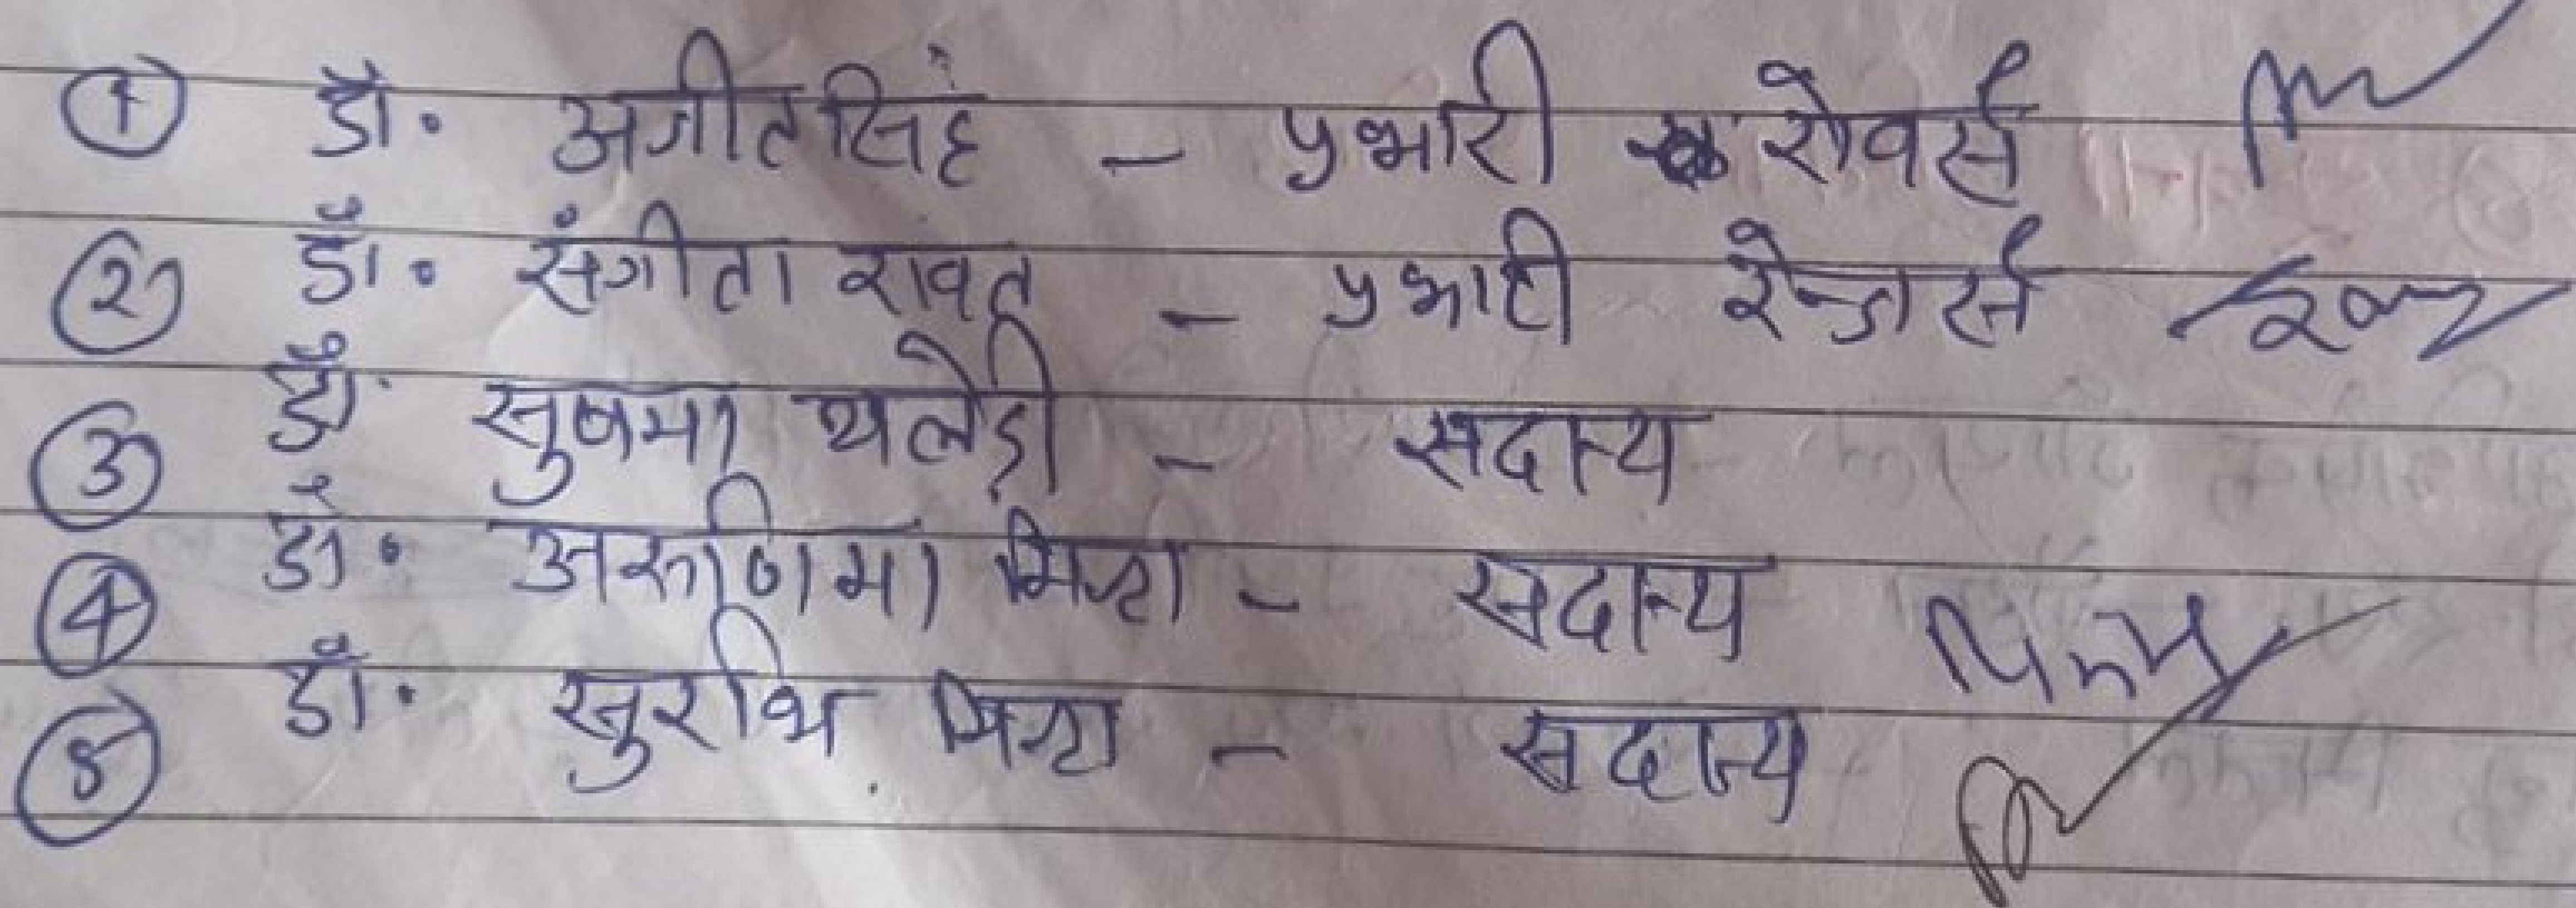 ① डॉ. अजीत सिंह - प्रभारी रोवर्स
② डॉ. संगीता रावत - प्रभारी रेन्जर्स
③ डॉ. सुषमा थलेड़ी - सदस्य
④ डॉ. अरूणिमा मिश्रा - सदस्य
⑤ डॉ. सुरभि मिश्रा - सदस्य